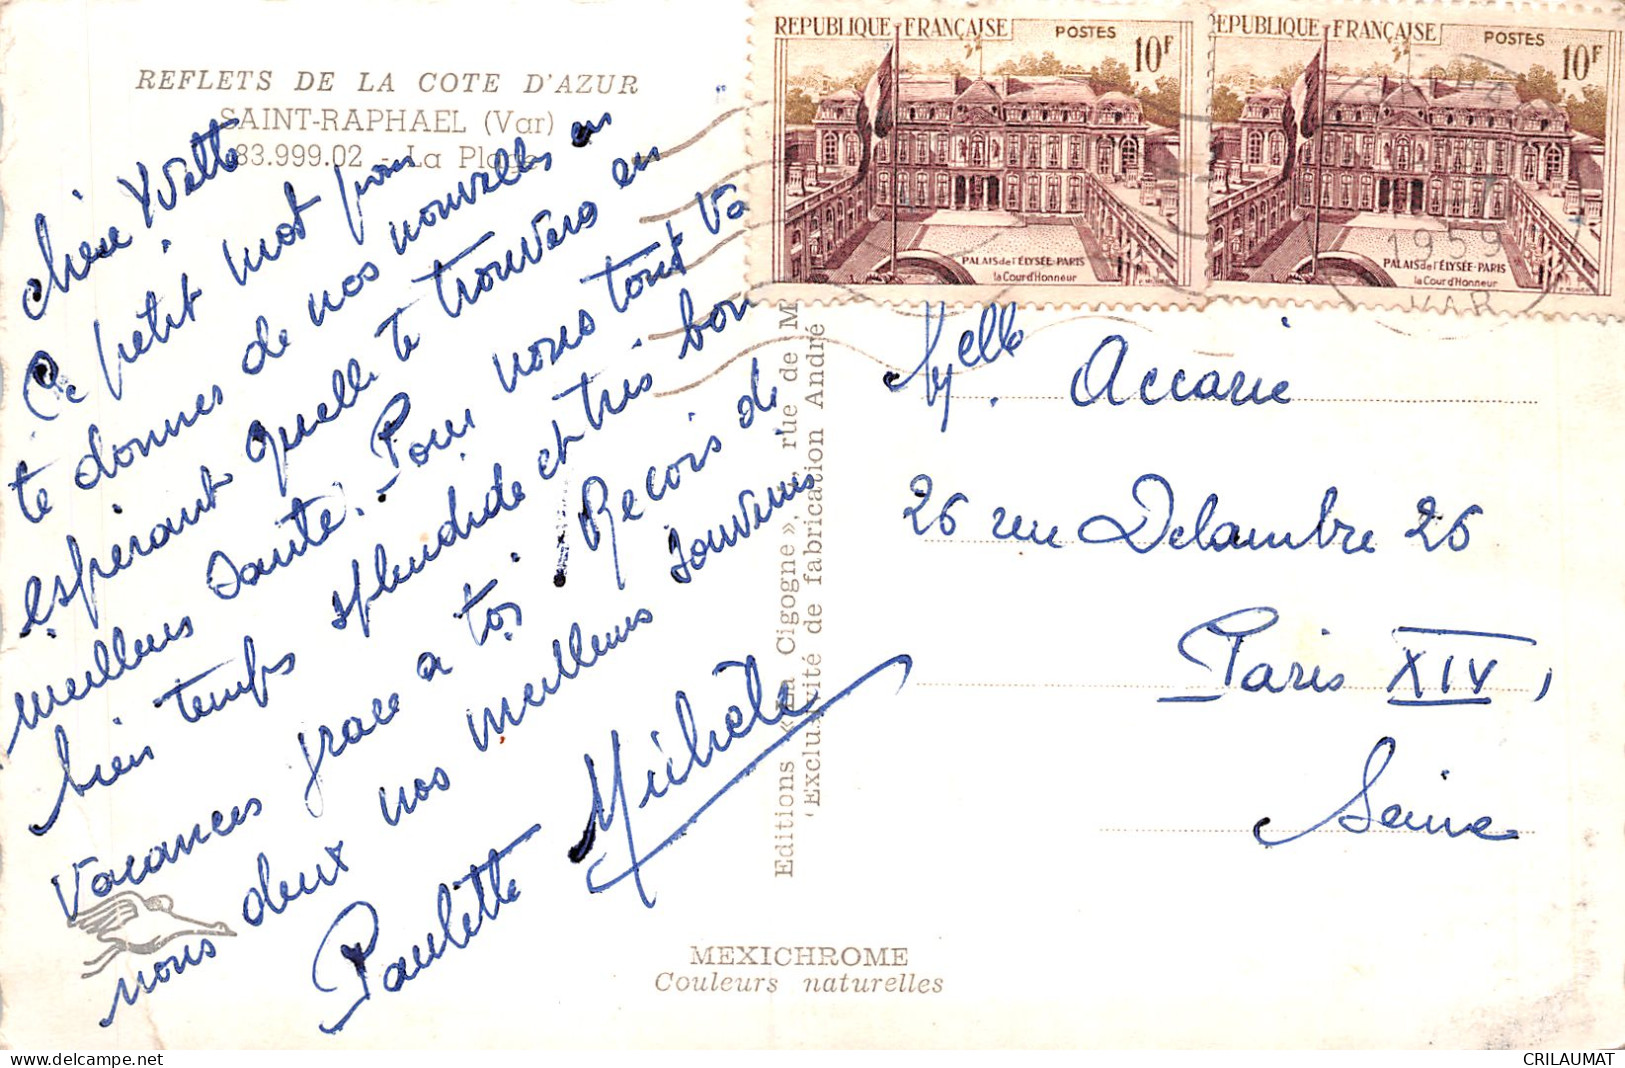 REFLETS DE LA COTE D'AZUR
SAINT-RAPHAEL (Var)
83.999.02 - La Plage
Chère Yvette
Ce petit mot pour
te donner de nos nouvelles en
espérant quelle te trouvera en
meilleurs santé. Pour nous tout va
bien temps splendide et très bon
vacances grace a toi Reçois de
nous deux nos meilleurs souvenirs
Paulette Michèle
Editions « La Cigogne », rue de M
Exclusivité de fabrication André
MEXICHROME
Couleurs naturelles
REPUBLIQUE FRANÇAISE POSTES 10F
PALAIS de l'ÉLYSÉE-PARIS
la Cour d'Honneur
REPUBLIQUE FRANÇAISE POSTES 10F
PALAIS de l'ÉLYSÉE-PARIS
la Cour d'Honneur
1959
VAR
Melle. Accarie
26 rue Delambre 26
Paris XIV,
Seine
delcampe.net
CRILAUMAT